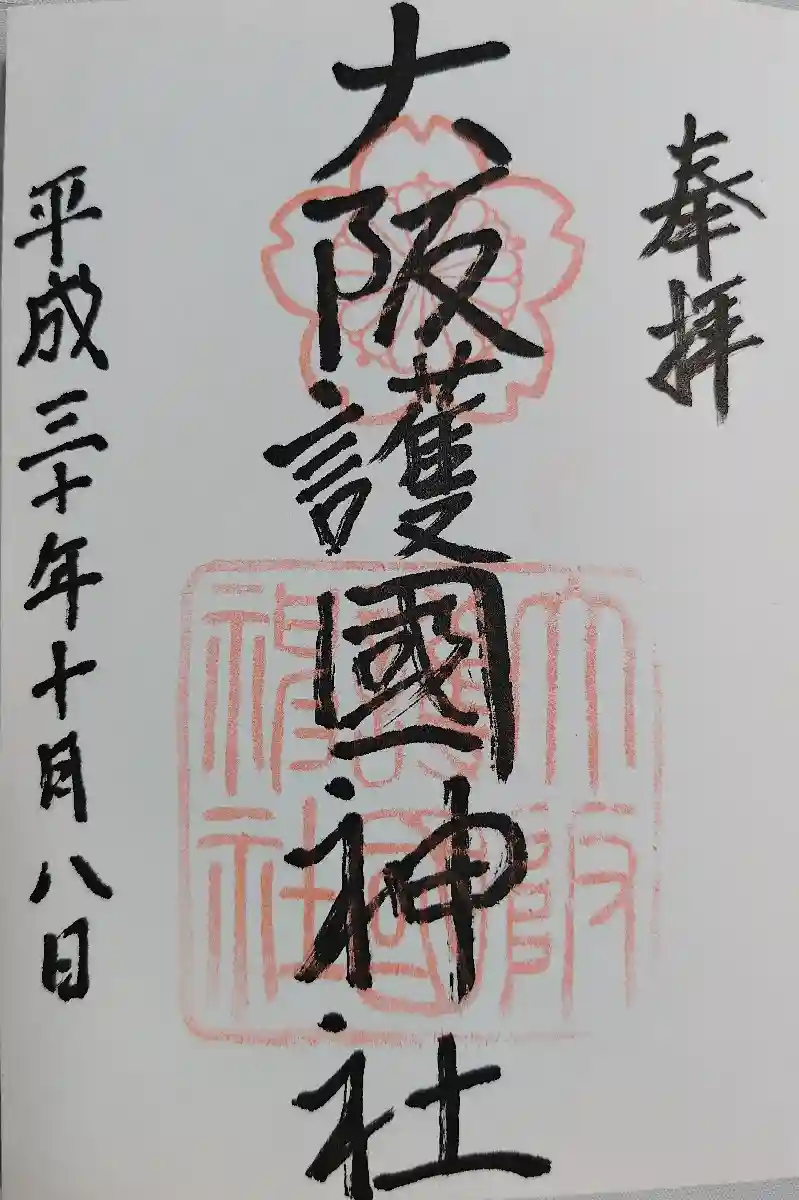 奉拝
大阪護國神社
大阪護國神社
平成三十年十月八日